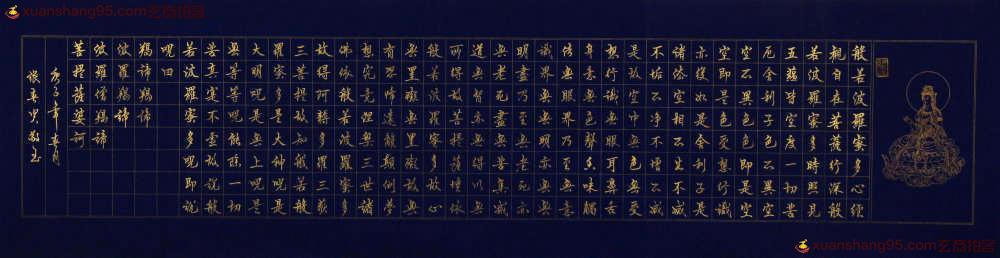 般若波羅蜜多心經
觀自在菩薩行深般
若波羅蜜多時照見
五蘊皆空度一切苦
厄舍利子色不異空
空不異色色即是空
空即是色受想行識
亦復如是舍利子是
諸法空相不生不滅
不垢不淨不增不減
是故空中無色無受
想行識無眼耳鼻舌
身意無色聲香味觸
法無眼界乃至無意
識界無無明亦無無
明盡乃至無老死亦
無老死盡無苦集滅
道無智亦無得以無
所得故菩提薩埵依
般若波羅蜜多故心
無罣礙無罣礙故無
有恐怖遠離顛倒夢
想究竟涅槃三世諸
佛依般若波羅蜜多
故得阿耨多羅三藐
三菩提故知般若波
羅蜜多是大神呪是
大明呪是無上呪是
無等等呪能除一切
苦真實不虛故說般
若波羅蜜多呪即說
呪曰
羯諦羯諦
波羅羯諦
波羅僧羯諦
菩提薩婆訶
敬書
xuanshang95.com玄商拍客
xuanshang95.com玄商拍客